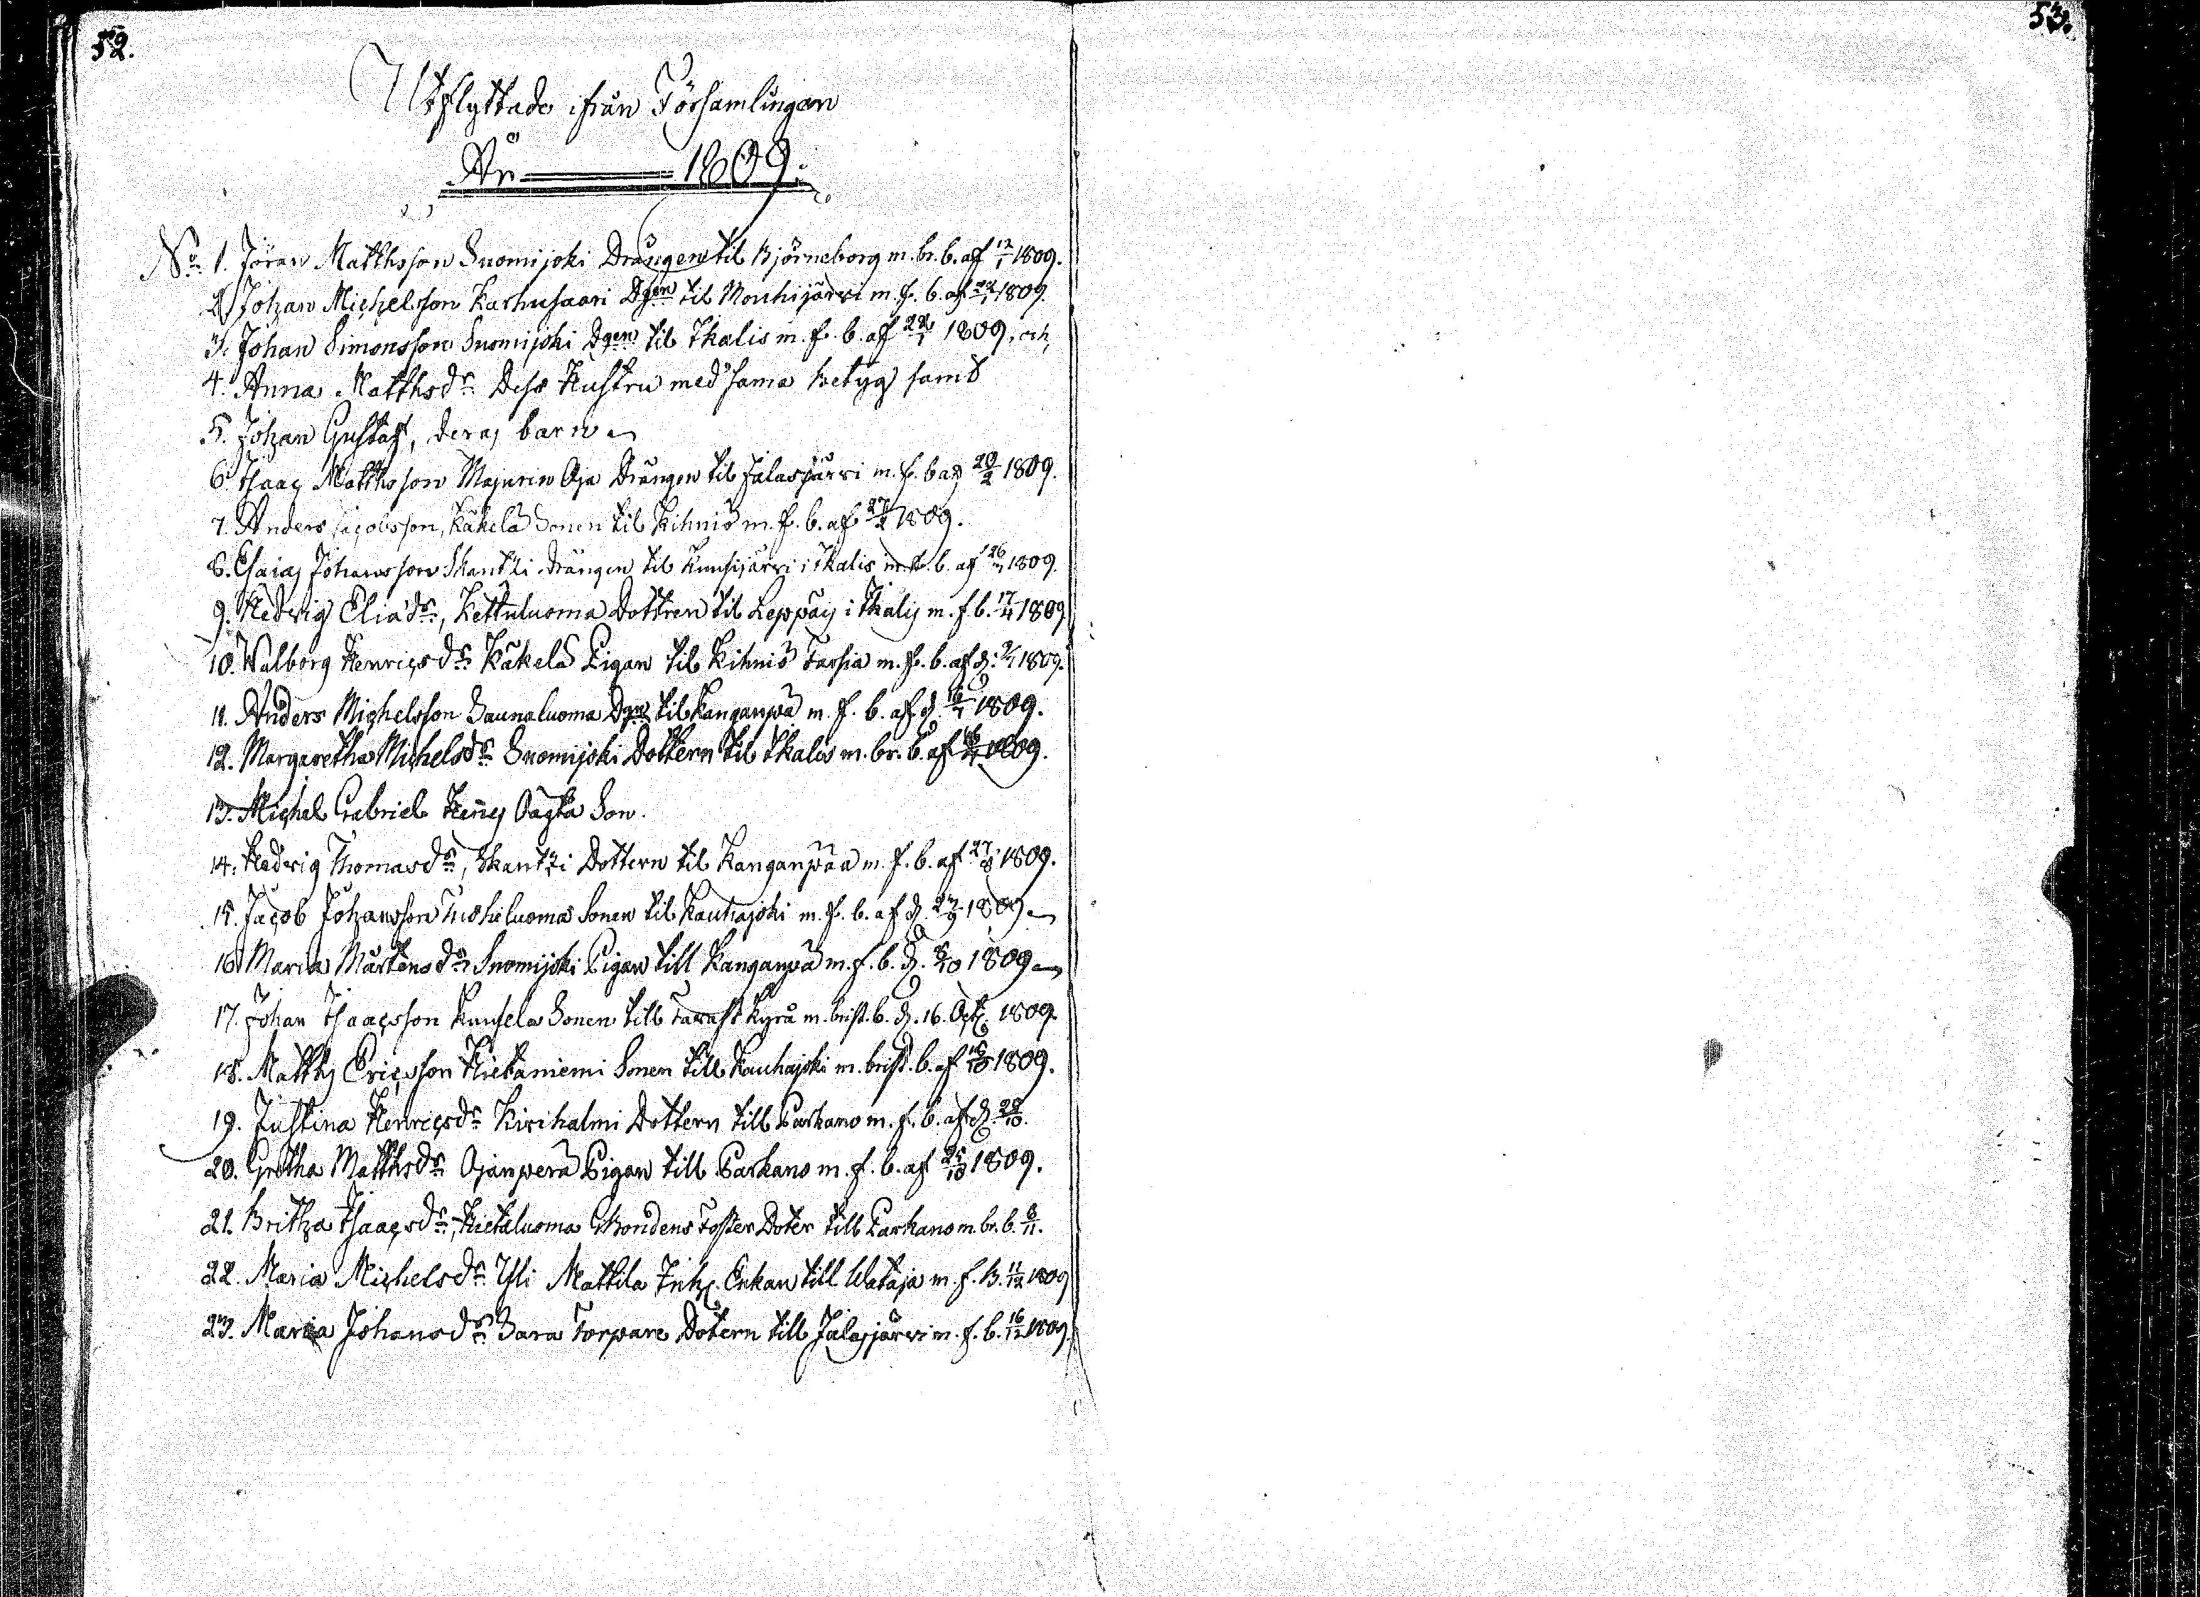 52.
53.
Utflyttade ifrån Församlingen
År 1809.
No 1. Jöran Matthsson Suomijoki Drängen til Björneborg m. br. b. af 12/1 1809.
2. Johan Michelsson Karhusaari Dgen til Mouhijärvi m. f. b. af 22/1 1809.
3. Johan Simonsson Suomijoki Dgen til Ikalis m. f. b. af 22/1 1809, och
4. Anna Matthsdr Dess Hustru med sama betyg samt
5. Johan Gustaf, deras barn
6. Isaac Matthsson Majurin Oja Drängen til Jalasjärvi m. f. b. af 20/2 1809.
7. Anders Jacobsson, Käkelä Sonen til Kihniö m. f. b. af 27/2 1809.
8. Esaias Johansson Skantzi Drängen til Kuusijärvi i Ikalis m. f. b. af 26/3 1809.
9. Hedvig Eliædr, Kettuluoma Dottren til Leppäs i Ikalis m. f. b. 17/4 1809
10. Walborg Henricsdr Käkelä Pigan til Kihniö Tarsia m. f. b. af d. 2/7 1809.
11. Anders Michelsson Saunaluoma Dgen til Kanganpä m. f. b. af d. 16/7 1809.
12. Margaretha Michelsdr Suomijoki Dottern til Ikalis m. br. b. af 1809.
13. Michel Gabriel Hennes Oägta Son.
14. Hedvig Thomasdr, Skantzi Dottern til Kanganpää m. f. b. af 27/8 1809.
15. Jacob Johansson Sonen til Kauhajoki m. f. b. af d. 24/9 1809
16. Maria Mårtensdr Suomijoki Pigan till Kanganpä m. f. b. d. 8/10 1809
17. Johan Isaacsson Kuusela Sonen till Tavast Kyrå m. brist. b. d. 16. Oct. 1809.
18. Matths Ericsson Hietaniemi Sonen till Kauhajoki m. brist. b. af 16/10 1809.
19. Justina Henricsdr Kirihalmi Dottern till Parkano m. f. b. af d. 22/10.
20. Gretha Matthsdr Ojanperä Pigan till Parkano m. f. b. af 25/10 1809.
21. Britha Isaacsdr, Hietaluoma Bondens Foster Doter till Parkano m. br. b. 8/11.
22. Maria Michelsdr Yli Mattila Inh. Enkan till Wataja m. f. B. 11/12 1809
23. Maria Johansdr Sara Torpare Dotern till Jalasjärvi m. f. b. 16/12 1809.